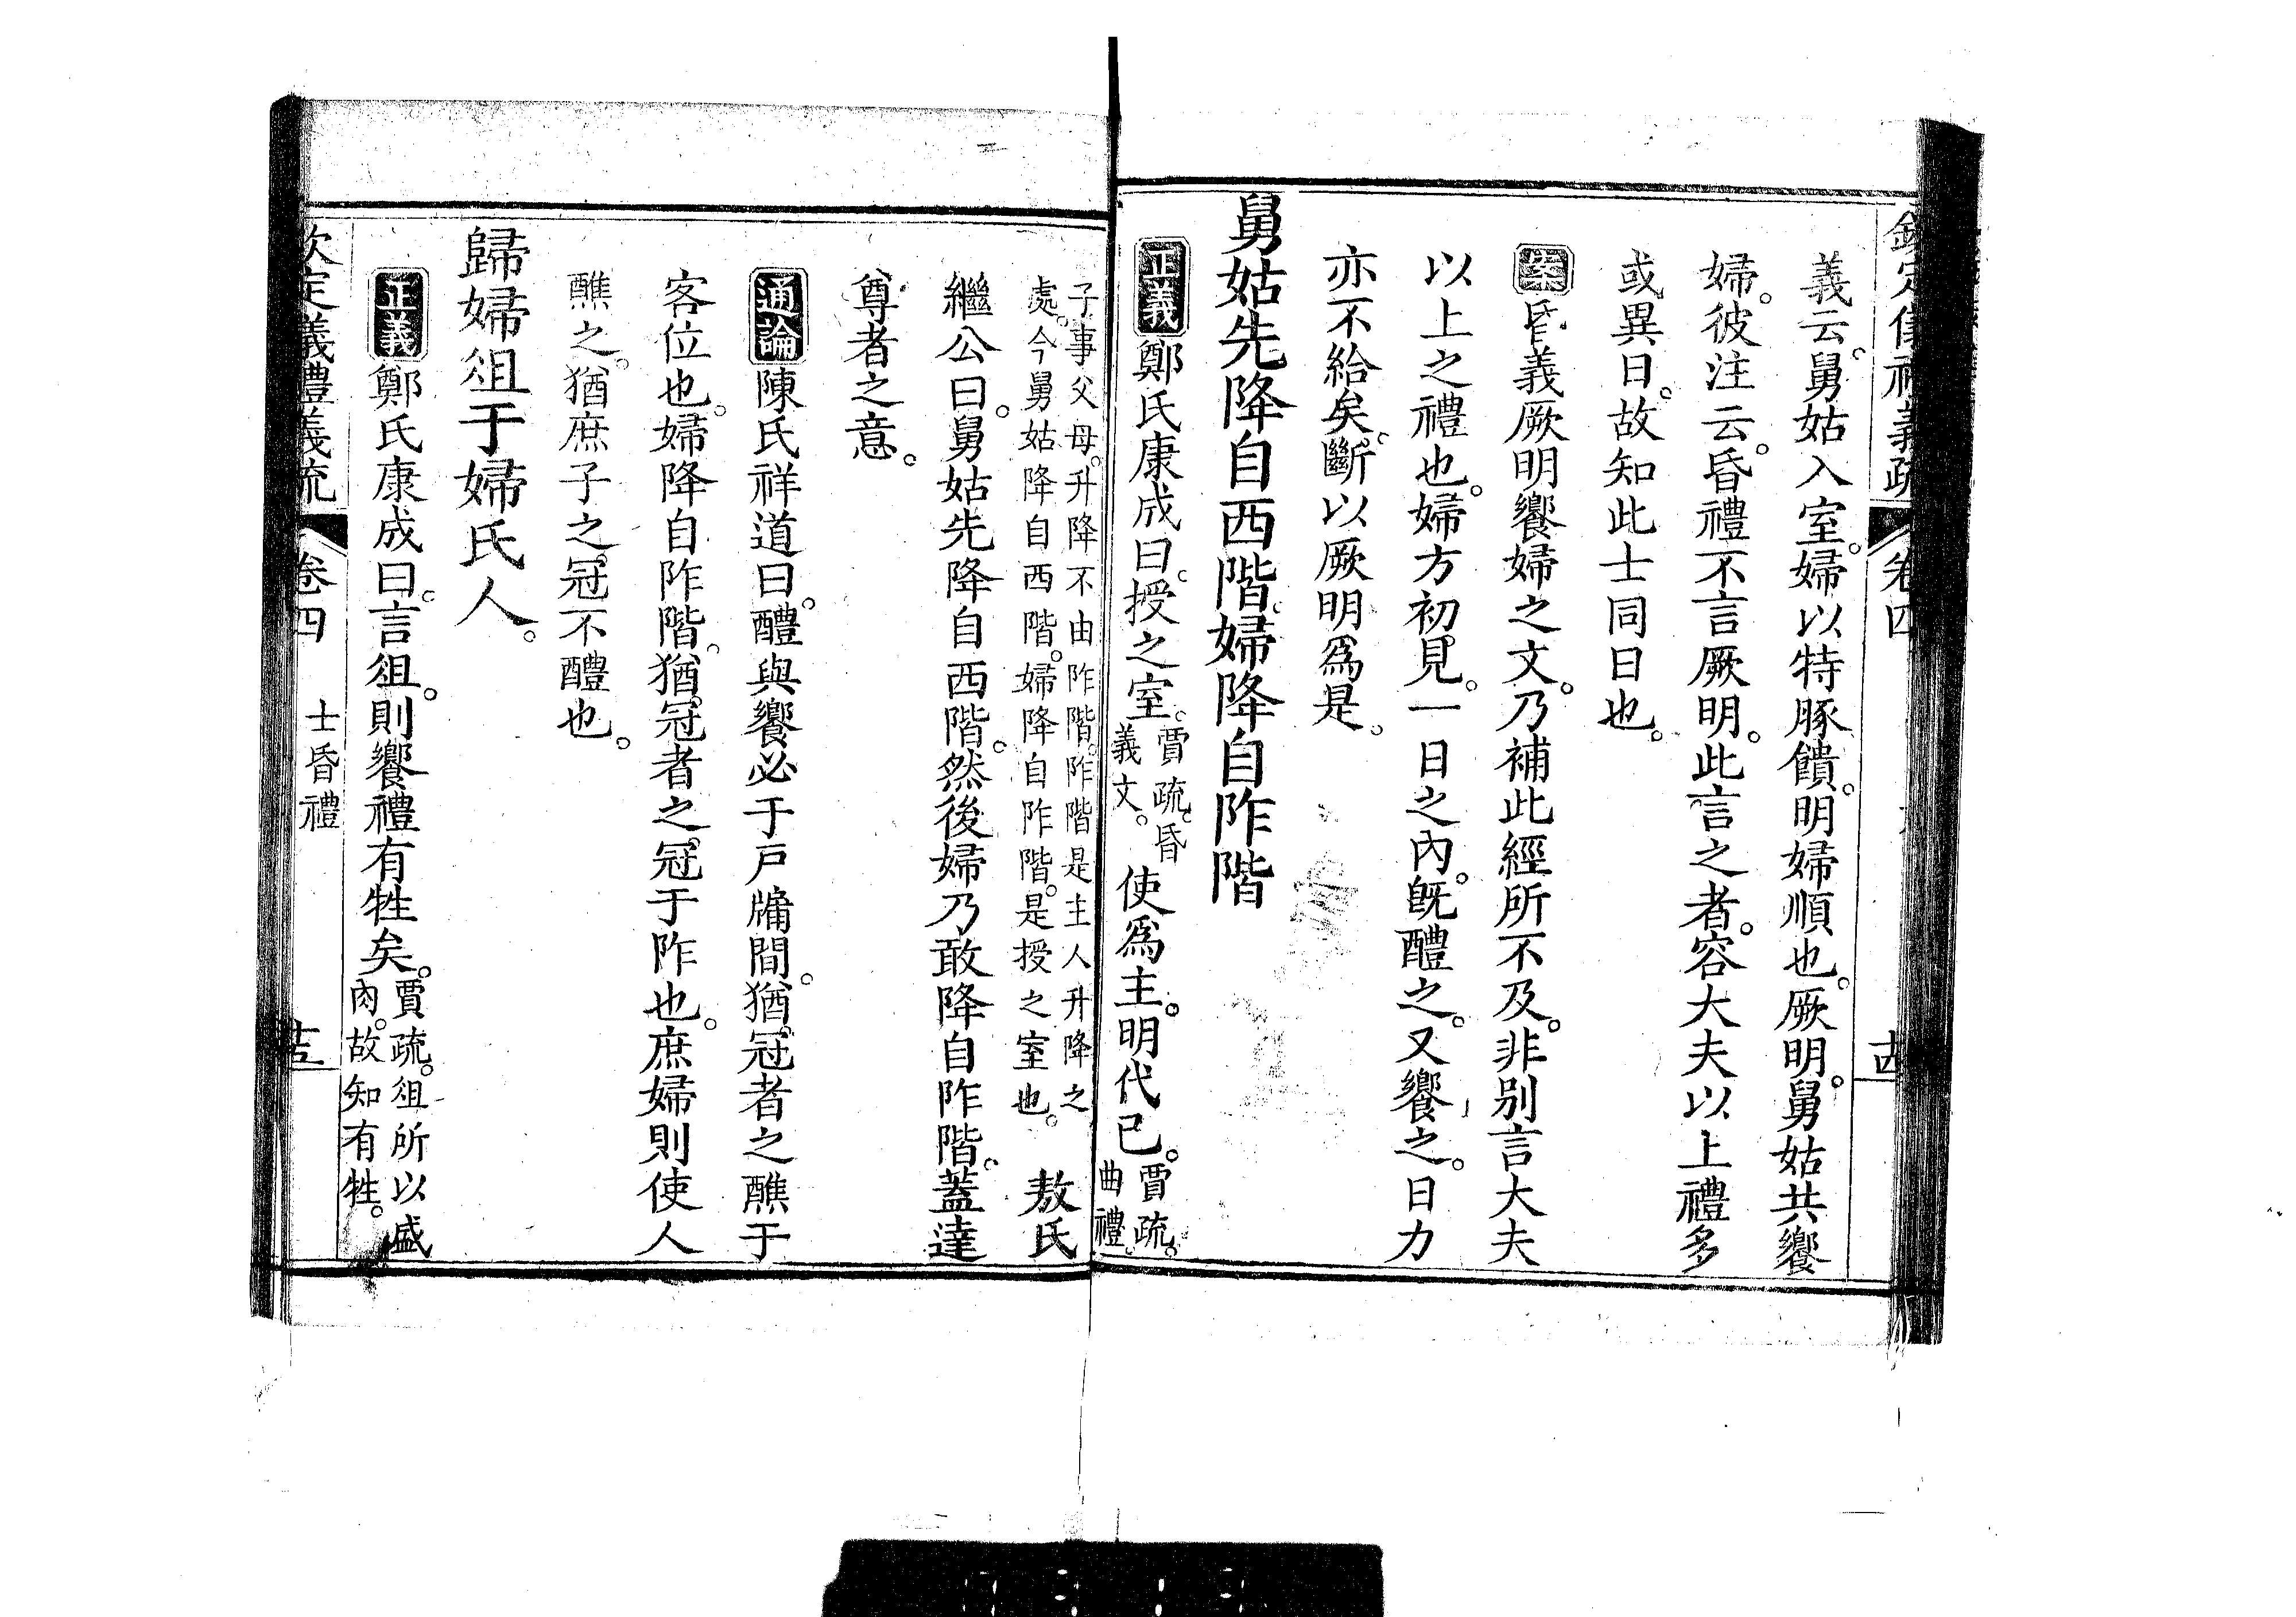 欽定儀禮義疏 卷四
義云。舅姑入室。婦以特豚饋。明婦順也。厥明。舅姑共饗
婦。彼注云。昏禮不言厥明。此言之者。容大夫以上禮多
或異日。故知此士同日也。
案昏義厥明饗婦之文。乃補此經所不及。非別言大夫
以上之禮也。婦方初見。一日之內。旣醴之。又饗之。日力
亦不給矣。斷以厥明爲是。
舅姑先降自西階。婦降自阼階
正義鄭氏康成曰。授之室。賈疏。昏義文。使爲主。明代己。賈疏。曲禮。
子事父母。升降不由阼階。阼階是主人升降之
處。今舅姑降自西階。婦降自阼階。是授之室也。敖氏
繼公曰。舅姑先降自西階。然後婦乃敢降自阼階。蓋達
尊者之意。
通論陳氏祥道曰。醴與饗必于戶牖間。猶冠者之醮于
客位也。婦降自阼階。猶冠者之冠于阼也。庶婦則使人
醮之。猶庶子之冠不醴也。
歸婦俎于婦氏人。
正義鄭氏康成曰。言俎。則饗禮有牲矣。賈疏。俎所以盛肉。故知有牲。
欽定儀禮義疏 卷四 士昏禮